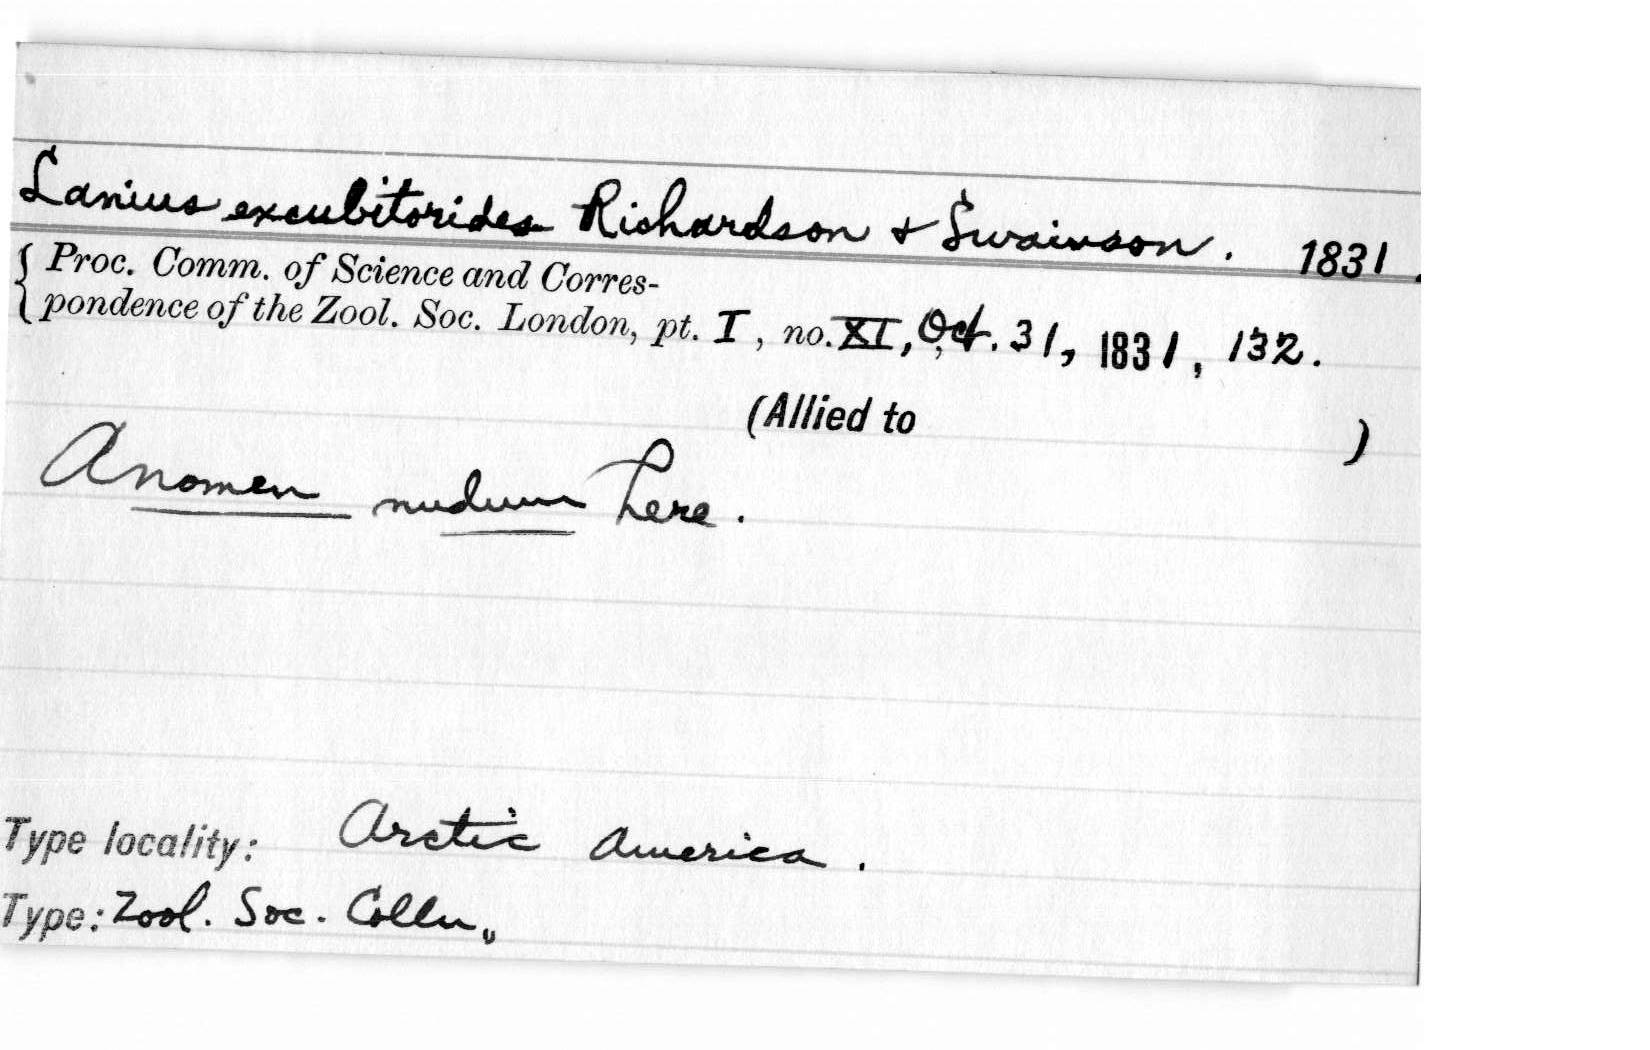 Lanius excubitorides Richardson + Swainson. 1831.
{ Proc. Comm. of Science and Corres-
pondence of the Zool. Soc. London, pt. I, no. XI, Oct. 31, 1831, 132.
(Allied to )
A nomen nudum here.
Type locality: Arctic America.
Type: Zool. Soc. Colln.